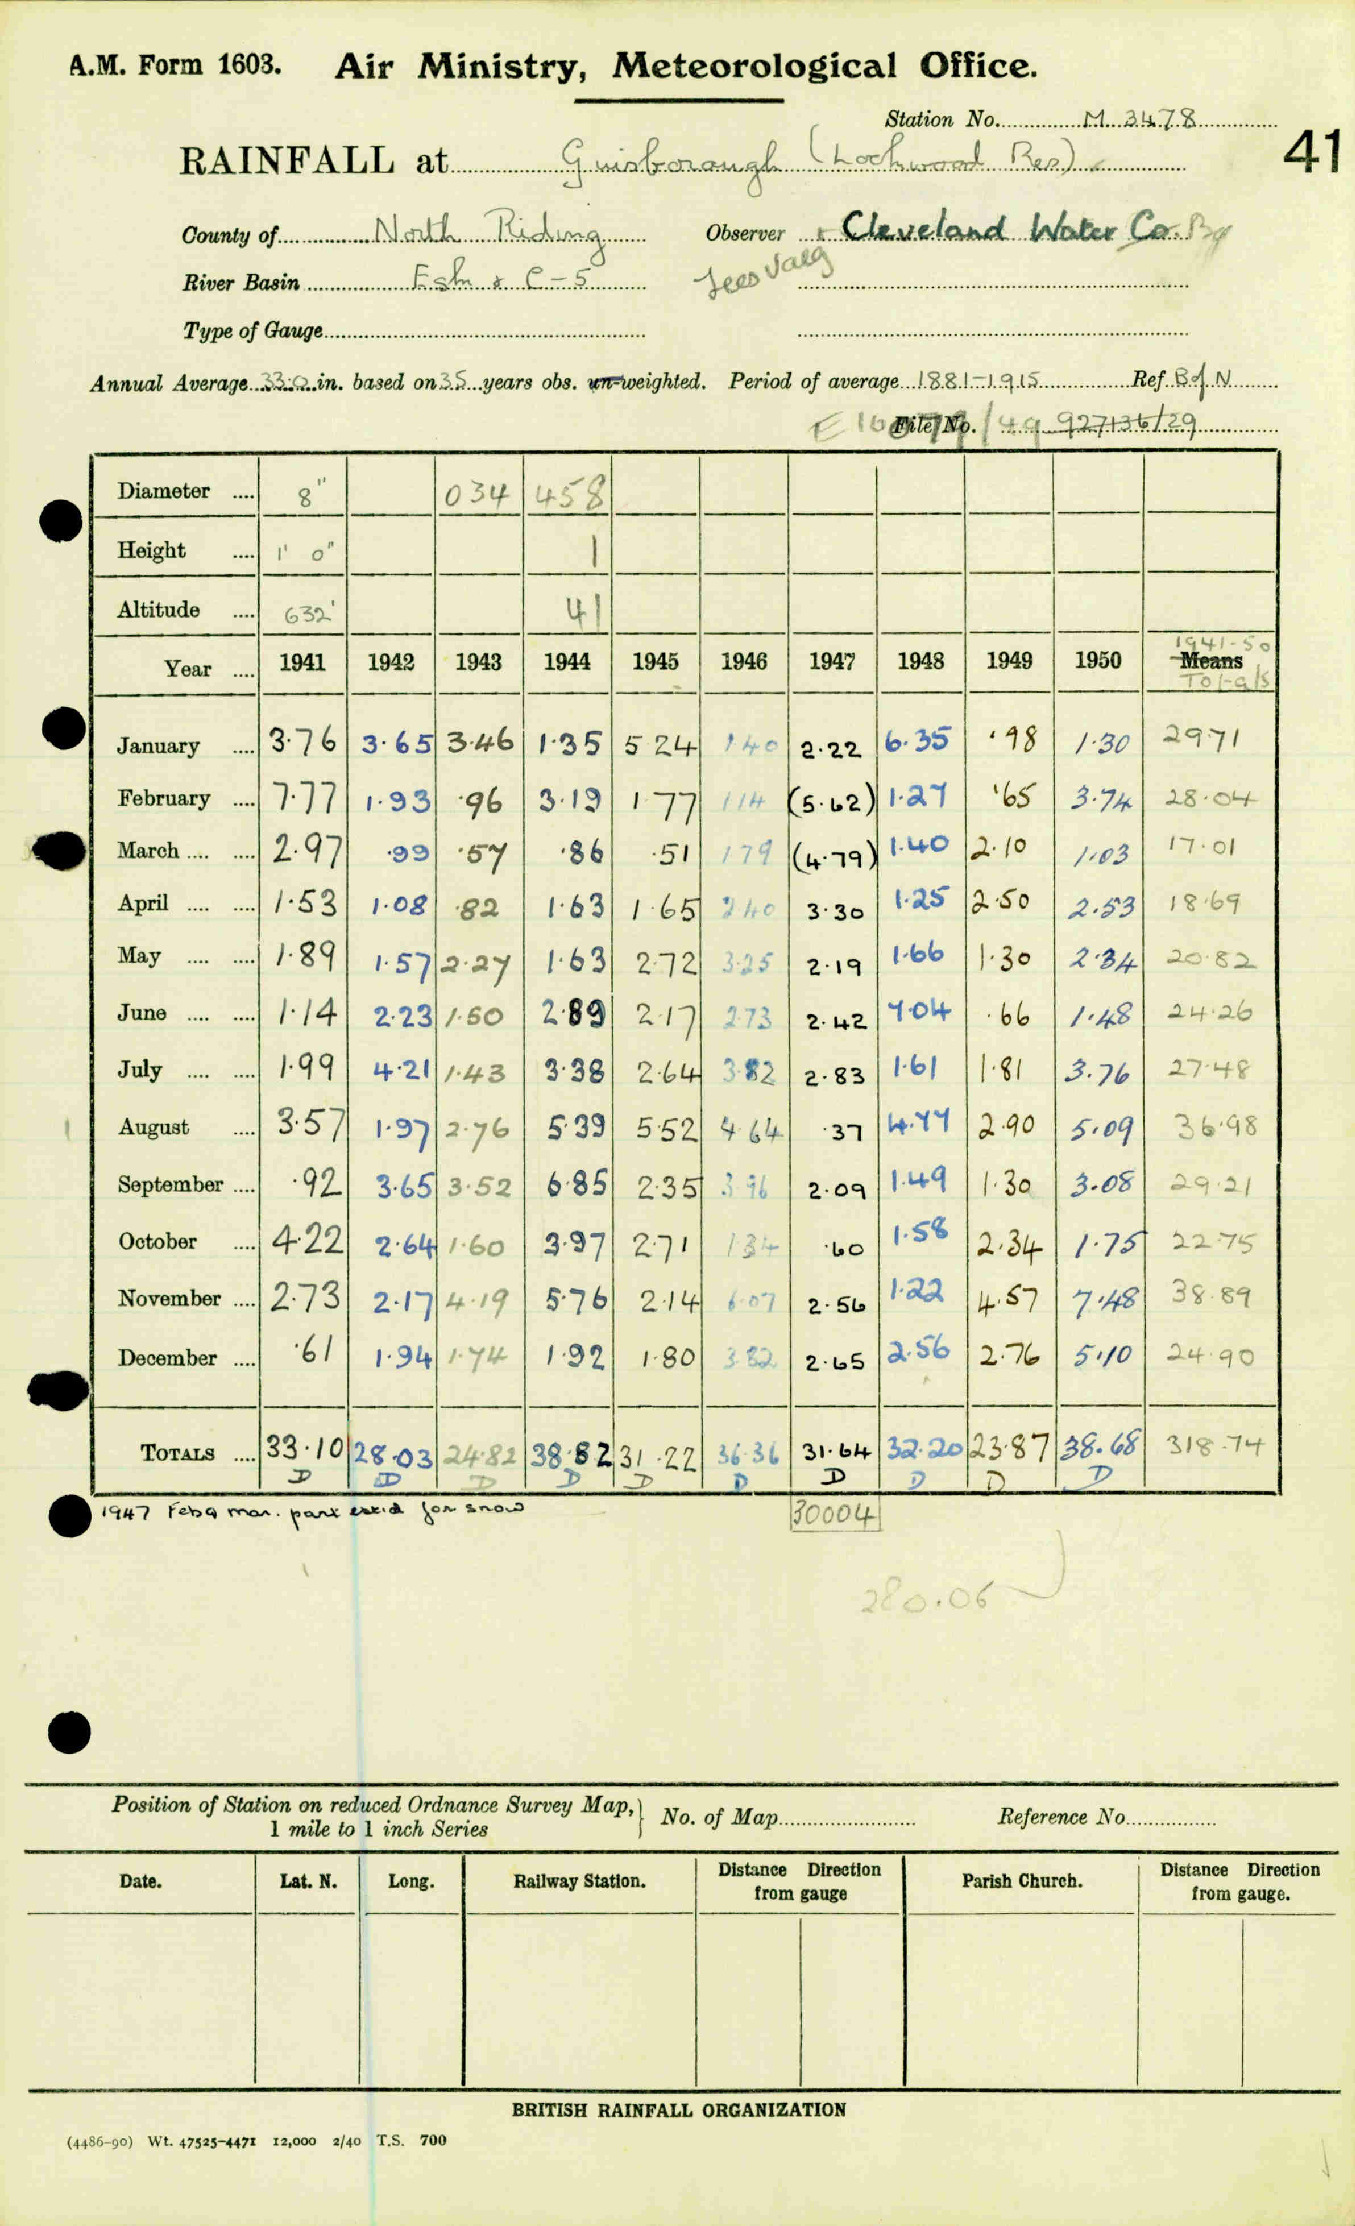 A.M. Form 1603. Air Ministry, Meteorological Office.
Station No. M 3478
41
RAINFALL at Guisborough (Lockwood Res)
County of North Riding Observer Cleveland Water Co.
River Basin Esk & C-5
Type of Gauge
Annual Average 33.0 in. based on 35 years obs. un-weighted. Period of average 1881-1915 Ref. B of N
File No. 927136/29
Diameter .... 8" 034 458
Height .... 1' 0" 1
Altitude .... 632' 41
1941-50
Year .... 1941 1942 1943 1944 1945 1946 1947 1948 1949 1950 Means
Totals
January .... 3.76 3.65 3.46 1.35 5 24 1 40 2.22 6.35 .98 1.30 29.71
February .... 7.77 1.93 .96 3.19 1.77 1 14 (5.62) 1.27 .65 3.74 28.04
March .... .... 2.97 .99 .57 .86 .51 1 79 (4.79) 1.40 2.10 1.03 17.01
April .... .... 1.53 1.08 .82 1.63 1.65 2 40 3.30 1.25 2.50 2.53 18.69
May .... .... 1.89 1.57 2.27 1.63 2.72 3.25 2.19 1.66 1.30 2.34 20.82
June .... .... 1.14 2.23 1.50 2.89 2.17 2.73 2.42 7.04 .66 1.48 24.26
July .... .... 1.99 4.21 1.43 3.38 2.64 3.82 2.83 1.61 1.81 3.76 27.48
August .... 3.57 1.97 2.76 5.39 5.52 4 64 .37 4.77 2.90 5.09 36.98
September .... .92 3.65 3.52 6.85 2.35 3 96 2.09 1.49 1.30 3.08 29.21
October .... 4.22 2.64 1.60 3.97 2.71 1 34 .60 1.58 2.34 1.75 22.75
November .... 2.73 2.17 4.19 5.76 2.14 6.07 2.56 1.22 4.57 7.48 38.89
December .... .61 1.94 1.74 1.92 1.80 3.82 2.65 2.56 2.76 5.10 24.90
TOTALS .... 33.10 28.03 24.82 38.82 31.22 36.36 31.64 32.20 23.87 38.68 318.74
D D D D D D D D D D
1947 Feb & mar. part est'd for snow 30004
280.06
Position of Station on reduced Ordnance Survey Map, } No. of Map Reference No.
1 mile to 1 inch Series
Date. Lat. N. Long. Railway Station. Distance Direction from gauge Parish Church. Distance Direction from gauge.
BRITISH RAINFALL ORGANIZATION
(4486-90) Wt. 47525-4471 12,000 2/40 T.S. 700